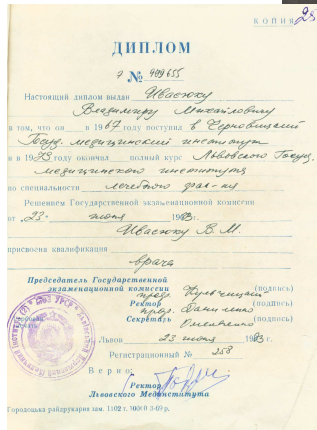 КОПИЯ 25
ДИПЛОМ
Я № 499655
Настоящий диплом выдан Ивасюку
Владимиру Михайловичу
в том, что он в 1967 году поступил в Черновицкий
Госуд. медицинский институт
и в 1973 году окончил полный курс Львовского Госуд.
медицинского института
по специальности лечебного фак-та
Решением Государственной экзаменационной комиссии
от 23 июня 1973 г.
Ивасюку В. М.
присвоена квалификация
врача
Председатель Государственной
экзаменационной комиссии проф. (подпись)
Ректор проф. Даниленко (подпись)
Секретарь Омеляненко (подпись)
Львов 23 июня 1973 г.
Регистрационный № 258
Верно:
Ректор
Львовского Мединститута
Городоцька райдрукарня зам. 1102 т. 10000 3-69 р.